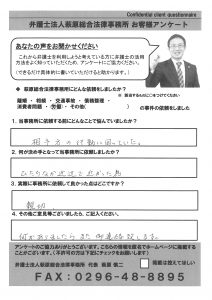 Confidential client questionnaire
弁護士法人萩原総合法律事務所 お客様アンケート
あなたの声をお聞かせください
これから弁護士を利用しようと考えている方に弁護士の活用
方法をよく知っていただくため、アンケートにご協力ください。
(できるだけ具体的に書いていただけると助かります。)
◆ 萩原総合法律事務所にどんな依頼をしましたか?
離婚 ・ 相続 ・ 交通事故 ・ 債務整理 ・
消費者問題 ・ 労働 ・ その他( )の事件を依頼しました
1. 当事務所に依頼する前にどんなことで悩んでいましたか?
相手方の行動に困っていた。
2. 何が決め手となって当事務所に依頼しましたか?
ひたちなか支店で近かった為
3. 実際に事務所に依頼して良かった点はどこですか?
親切
4. その他ご意見等ございましたら、ご記入ください。
何かありましたらまた御連絡致します。
アンケートのご協力ありがとうございます。こちらの情報を匿名でホームページに掲載する
ことがございます。(不許可の方は下記にチェックをお願いします)
弁護士法人萩原総合法律事務所 代表 萩原 慎二
掲載は控えてほしい
FAX:0296-48-8895